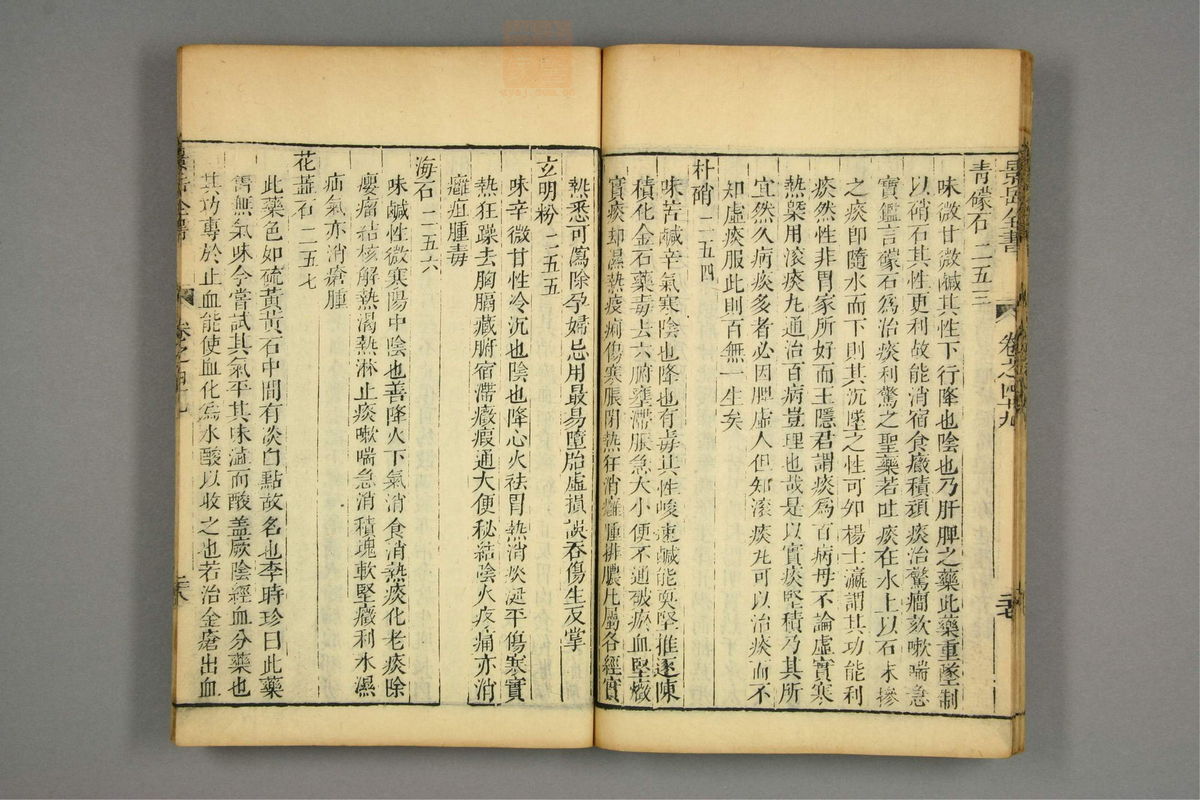 景岳全書 卷之四十九 三七
青礞石二五三
味微甘微鹹其性下行降也陰也乃肝脾之藥此藥重墜制
以硝石其性更利故能消宿食癥積頑痰治驚癇欬嗽喘急
寶鑑言礞石爲治痰利驚之聖藥若吐痰在水上以石末摻
之痰卽隨水而下則其沉墜之性可知楊士瀛謂其功能利
痰然性非胃家所好而王隱君謂痰爲百病母不論虛實寒
熱槩用滚痰丸通治百病豈理也哉是以實痰堅積乃其所
宜然久病痰多者必因脾虛人但知滚痰丸可以治痰而不
知虛痰服此則百無一生矣
朴硝二五四
味苦鹹辛氣寒陰也降也有毒其性峻速鹹能耎堅推逐陳
積化金石藥毒去六腑壅滯脹急大小便不通破瘀血堅癥
實痰却濕熱疫痢傷寒脹閉熱狂消癰腫排膿凡屬各經實
熱悉可瀉除孕婦忌用最易墮胎虛損誤吞傷生反掌
玄明粉二五五
味辛微甘性冷沉也陰也降心火祛胃熱消痰涎平傷寒實
熱狂躁去胸膈臟腑宿滯癥瘕通大便秘結陰火疼痛亦消
癰疽腫毒
海石二五六
味鹹性微寒陽中陰也善降火下氣消食消熱痰化老痰除
癭瘤結核解熱渴熱淋止痰嗽喘急消積塊軟堅癥利水濕
疝氣亦消瘡腫
花蕊石二五七
此藥色如硫黃黃石中間有淡白點故名也李時珍曰此藥
舊無氣味今嘗試其氣平其味澁而酸蓋厥陰經血分藥也
其功專於止血能使血化爲水酸以收之也若治金瘡出血
景岳全書 卷之四十九 三八